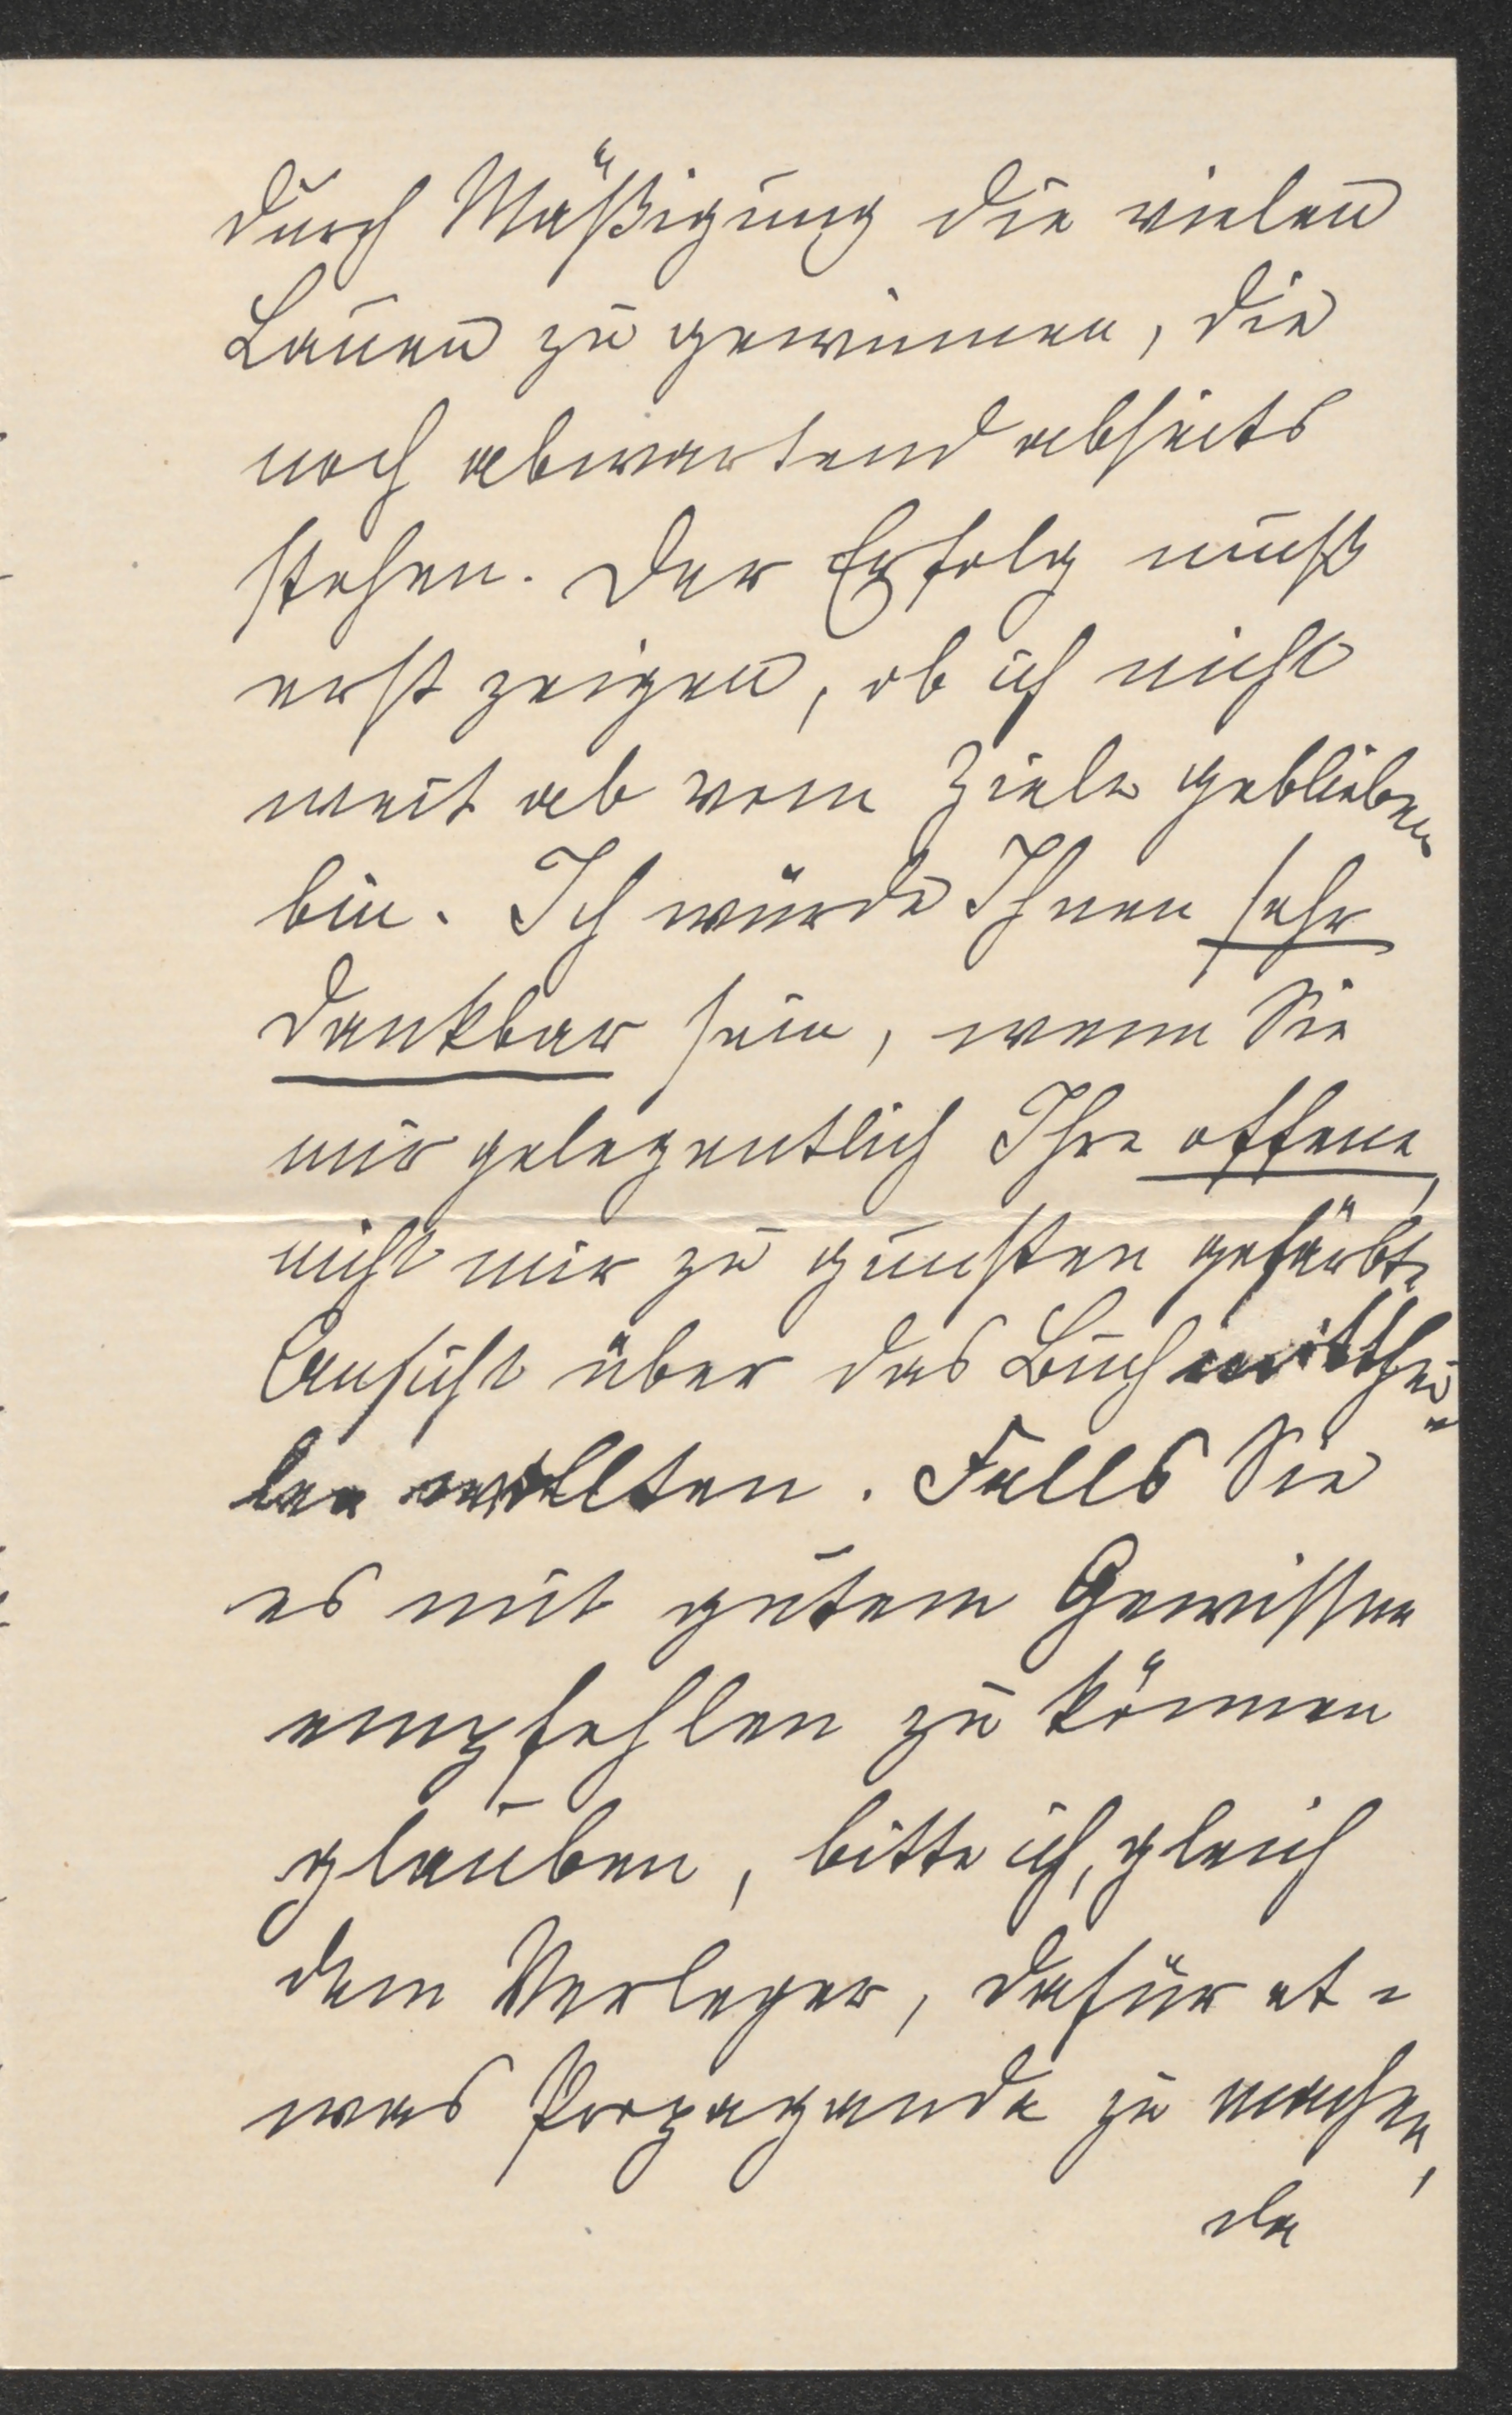 durch Mäßigung die vielen
Lauen zu gewinnen, die
noch abwartend abseits
stehen. Der Erfolg muß
erst zeigen, ob ich nicht
weit ab vom Ziele geblieben
bin. Ich würde Ihnen sehr
dankbar sein, wenn Sie
mir gelegentlich Ihre offene,
nicht mir zu gunsten gefärbte
Ansicht über das Buch mitthei-
len wollten. Falls Sie
es mit gutem Gewissen
empfehlen zu können
glauben, bitte ich, gleich
dem Verleger, dafür et-
was Propaganda zu machen,
da